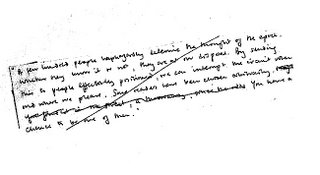 "A few hundred people haphazardly determine the thought of the epoch.
Whether they know it or not, they are at our disposal. By sending
this to people effectively positioned, we can interrupt the circuit when
and where we please. Some readers have been chosen arbitrarily.
You have a
chance to be one of them."